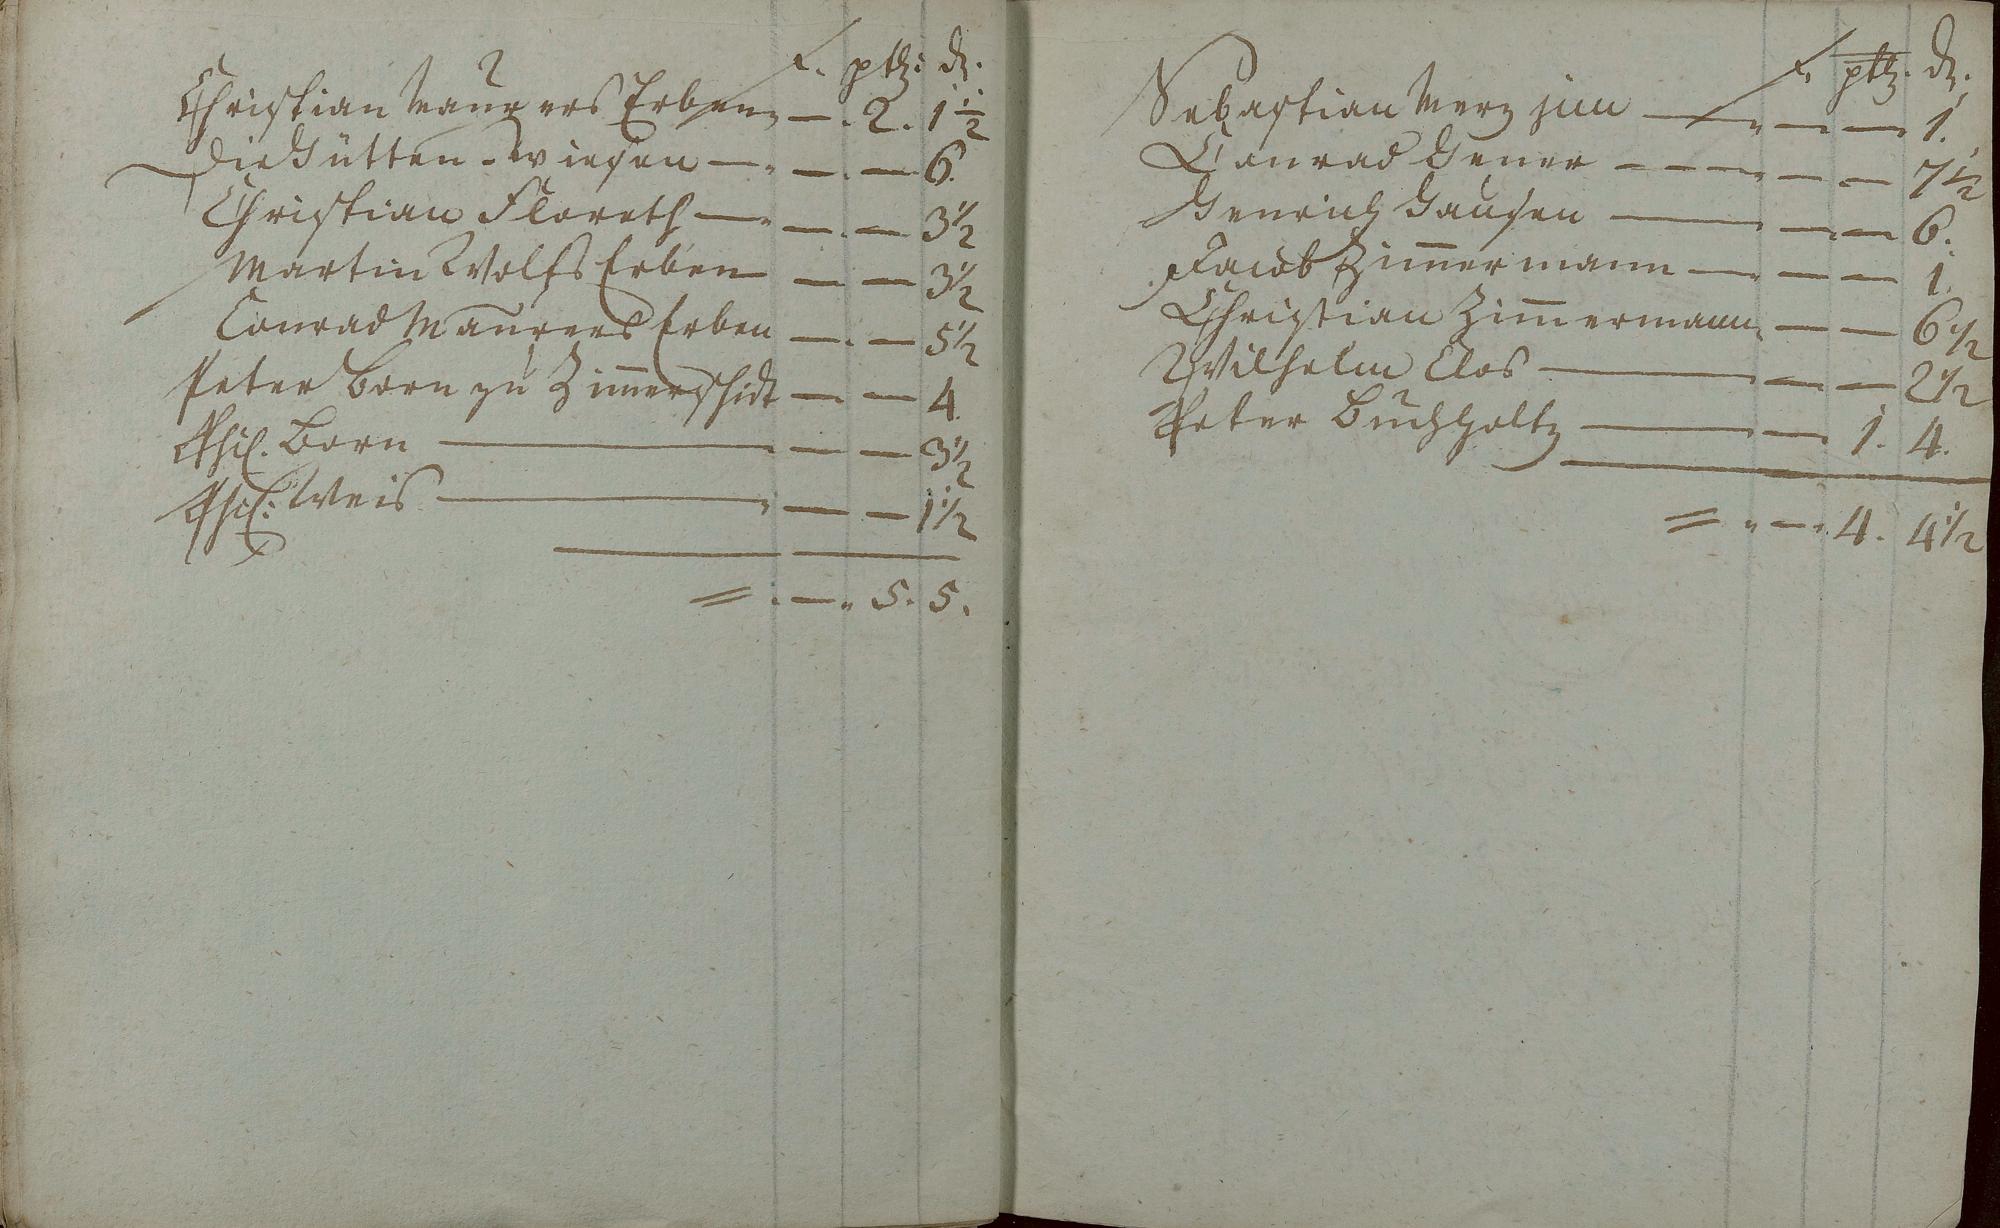 f. ptz: d.
Christian Maurers Erben — . 2. 1 1/2
die Hütten-wiesen — — — 6.
Christian Floreth — — — 3 1/2
Martin Wolfs Erben — — 3 1/2
Conrad Maurers Erben — — 5 1/2
Peter Born zu Zimmerschidt — — 4.
Born — — — 3 1/2
Weis — — — 1 1/2
= . — . 5. 5.
f. ptz. d.
Sebastian Merz jun — — — 1.
Conrad — — — 7 1/2
Henrich Hausen — — — 6.
Jacob Zimmermann — — — 1.
Christian Zimmermann — — 6 1/2
Wilhelm Clos — — — 2 1/2
Peter Buchholtz — — 1. 4.
= . — . 4. 4 1/2